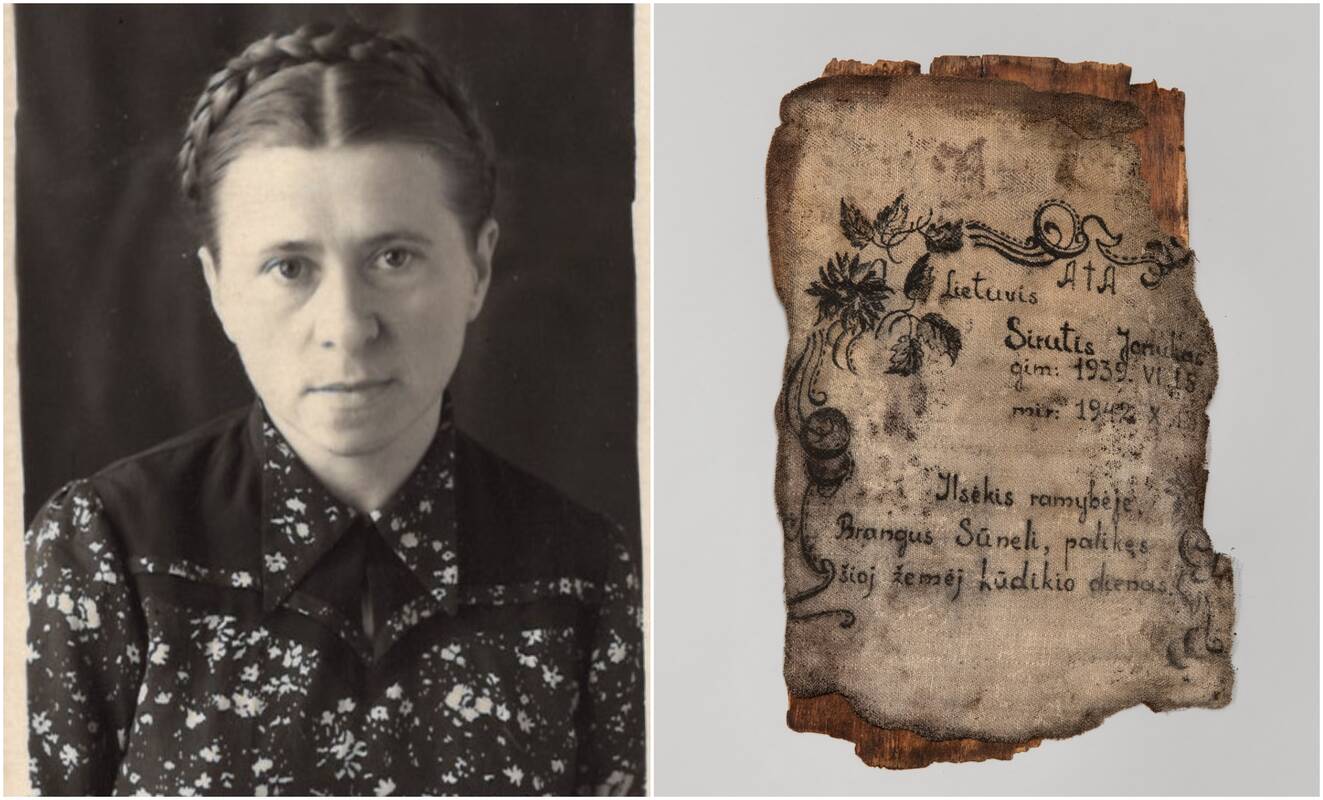 A†A
Lietuvis
Sirutis Jonukas
gim: 1939. VI 15
mir: 1942 X
Ilsėkis ramybėje,
Brangus Sūneli, palikęs
šioj žemėj kūdikio dienas.